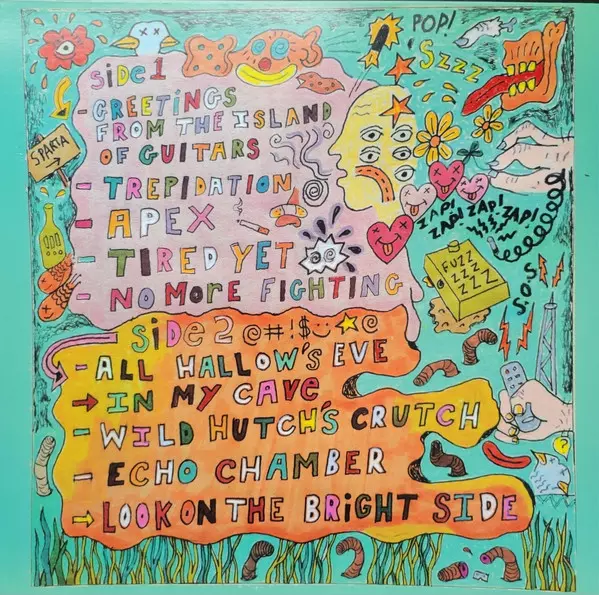 POP!
SZZZ
SiDe 1
- GREETINGS
FROM THE ISLAND
OF GUITARS
SPARTA
- TREPIDATION
- APEX
ZAP! ZAP! ZAP! ZAP!
- TIRED YET
FUZZ
ZZZ
ZZZ
- NO MORE FIGHTING
S.O.S.
SiDe 2 @#!$
- ALL HALLOW'S EVE
→ IN MY CAVE
- WILD HUTCH'S CRUTCH
?
- ECHO CHAMBER
→ LOOK ON THE BRiGHT SIDE